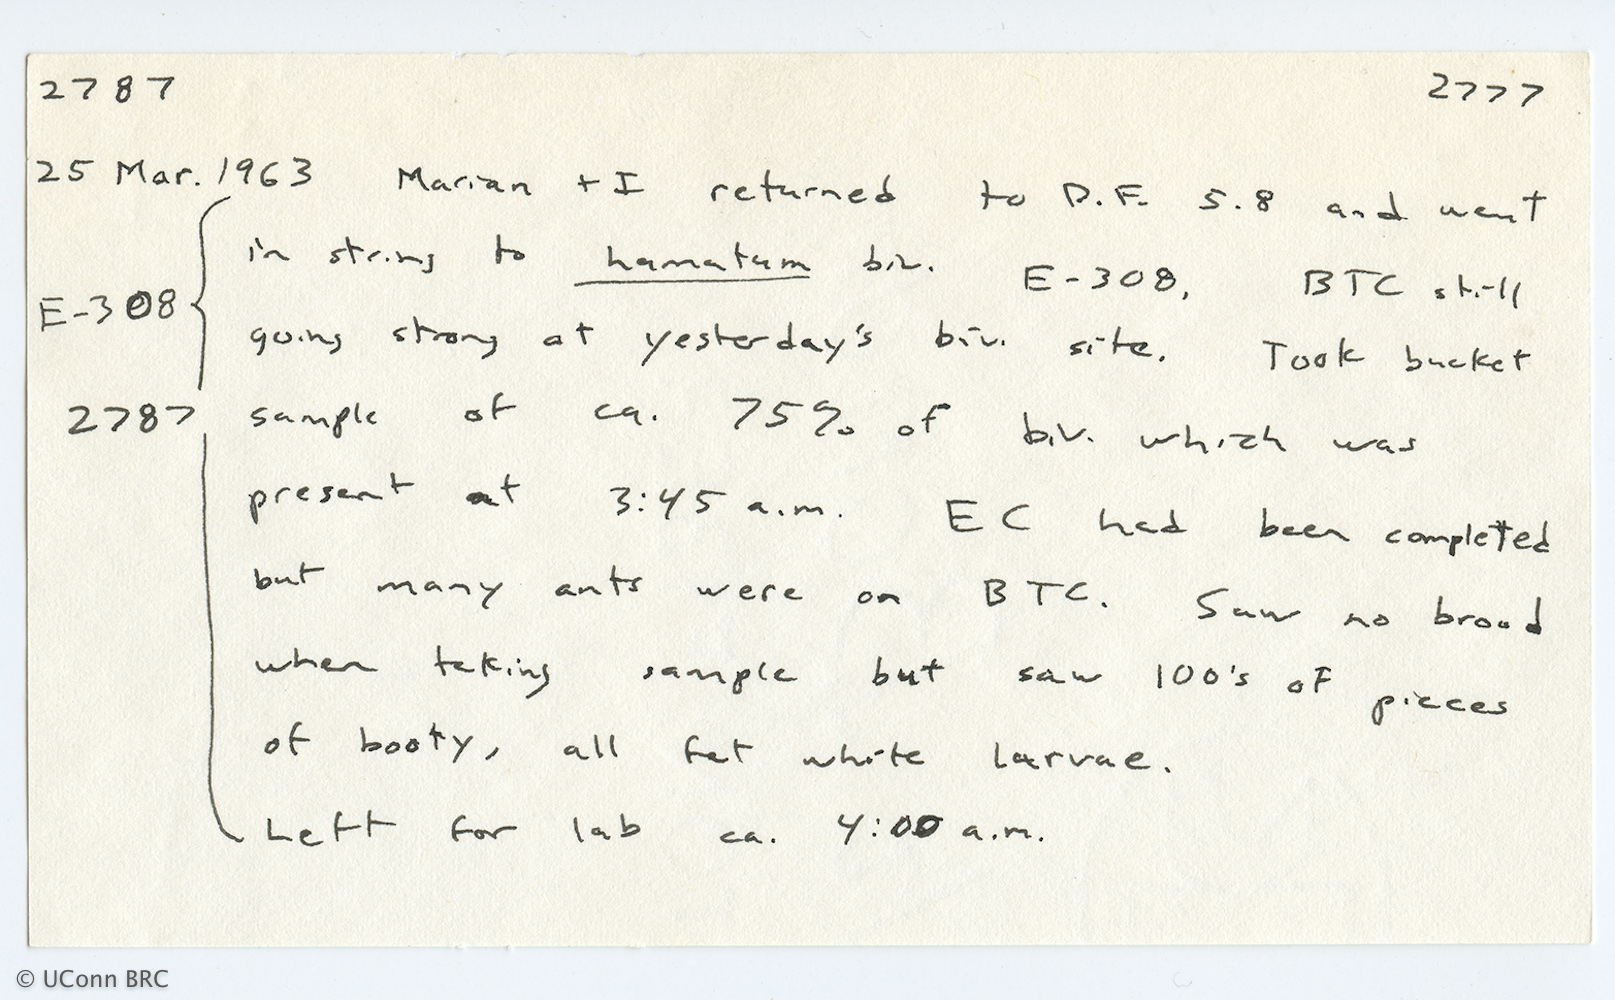 2787 2777
25 Mar. 1963 Marian + I returned to D.F. 5.8 and went
in string to hamatum biv. E-308, BTC still
E-308
going strong at yesterday's biv. site. Took bucket
2787 sample of ca. 75% of biv. which was
present at 3:45 a.m. EC had been completed
but many ants were on BTC. Saw no brood
when taking sample but saw 100's of pieces
of booty, all fat white larvae.
Left for lab ca. 4:00 a.m.
© UConn BRC